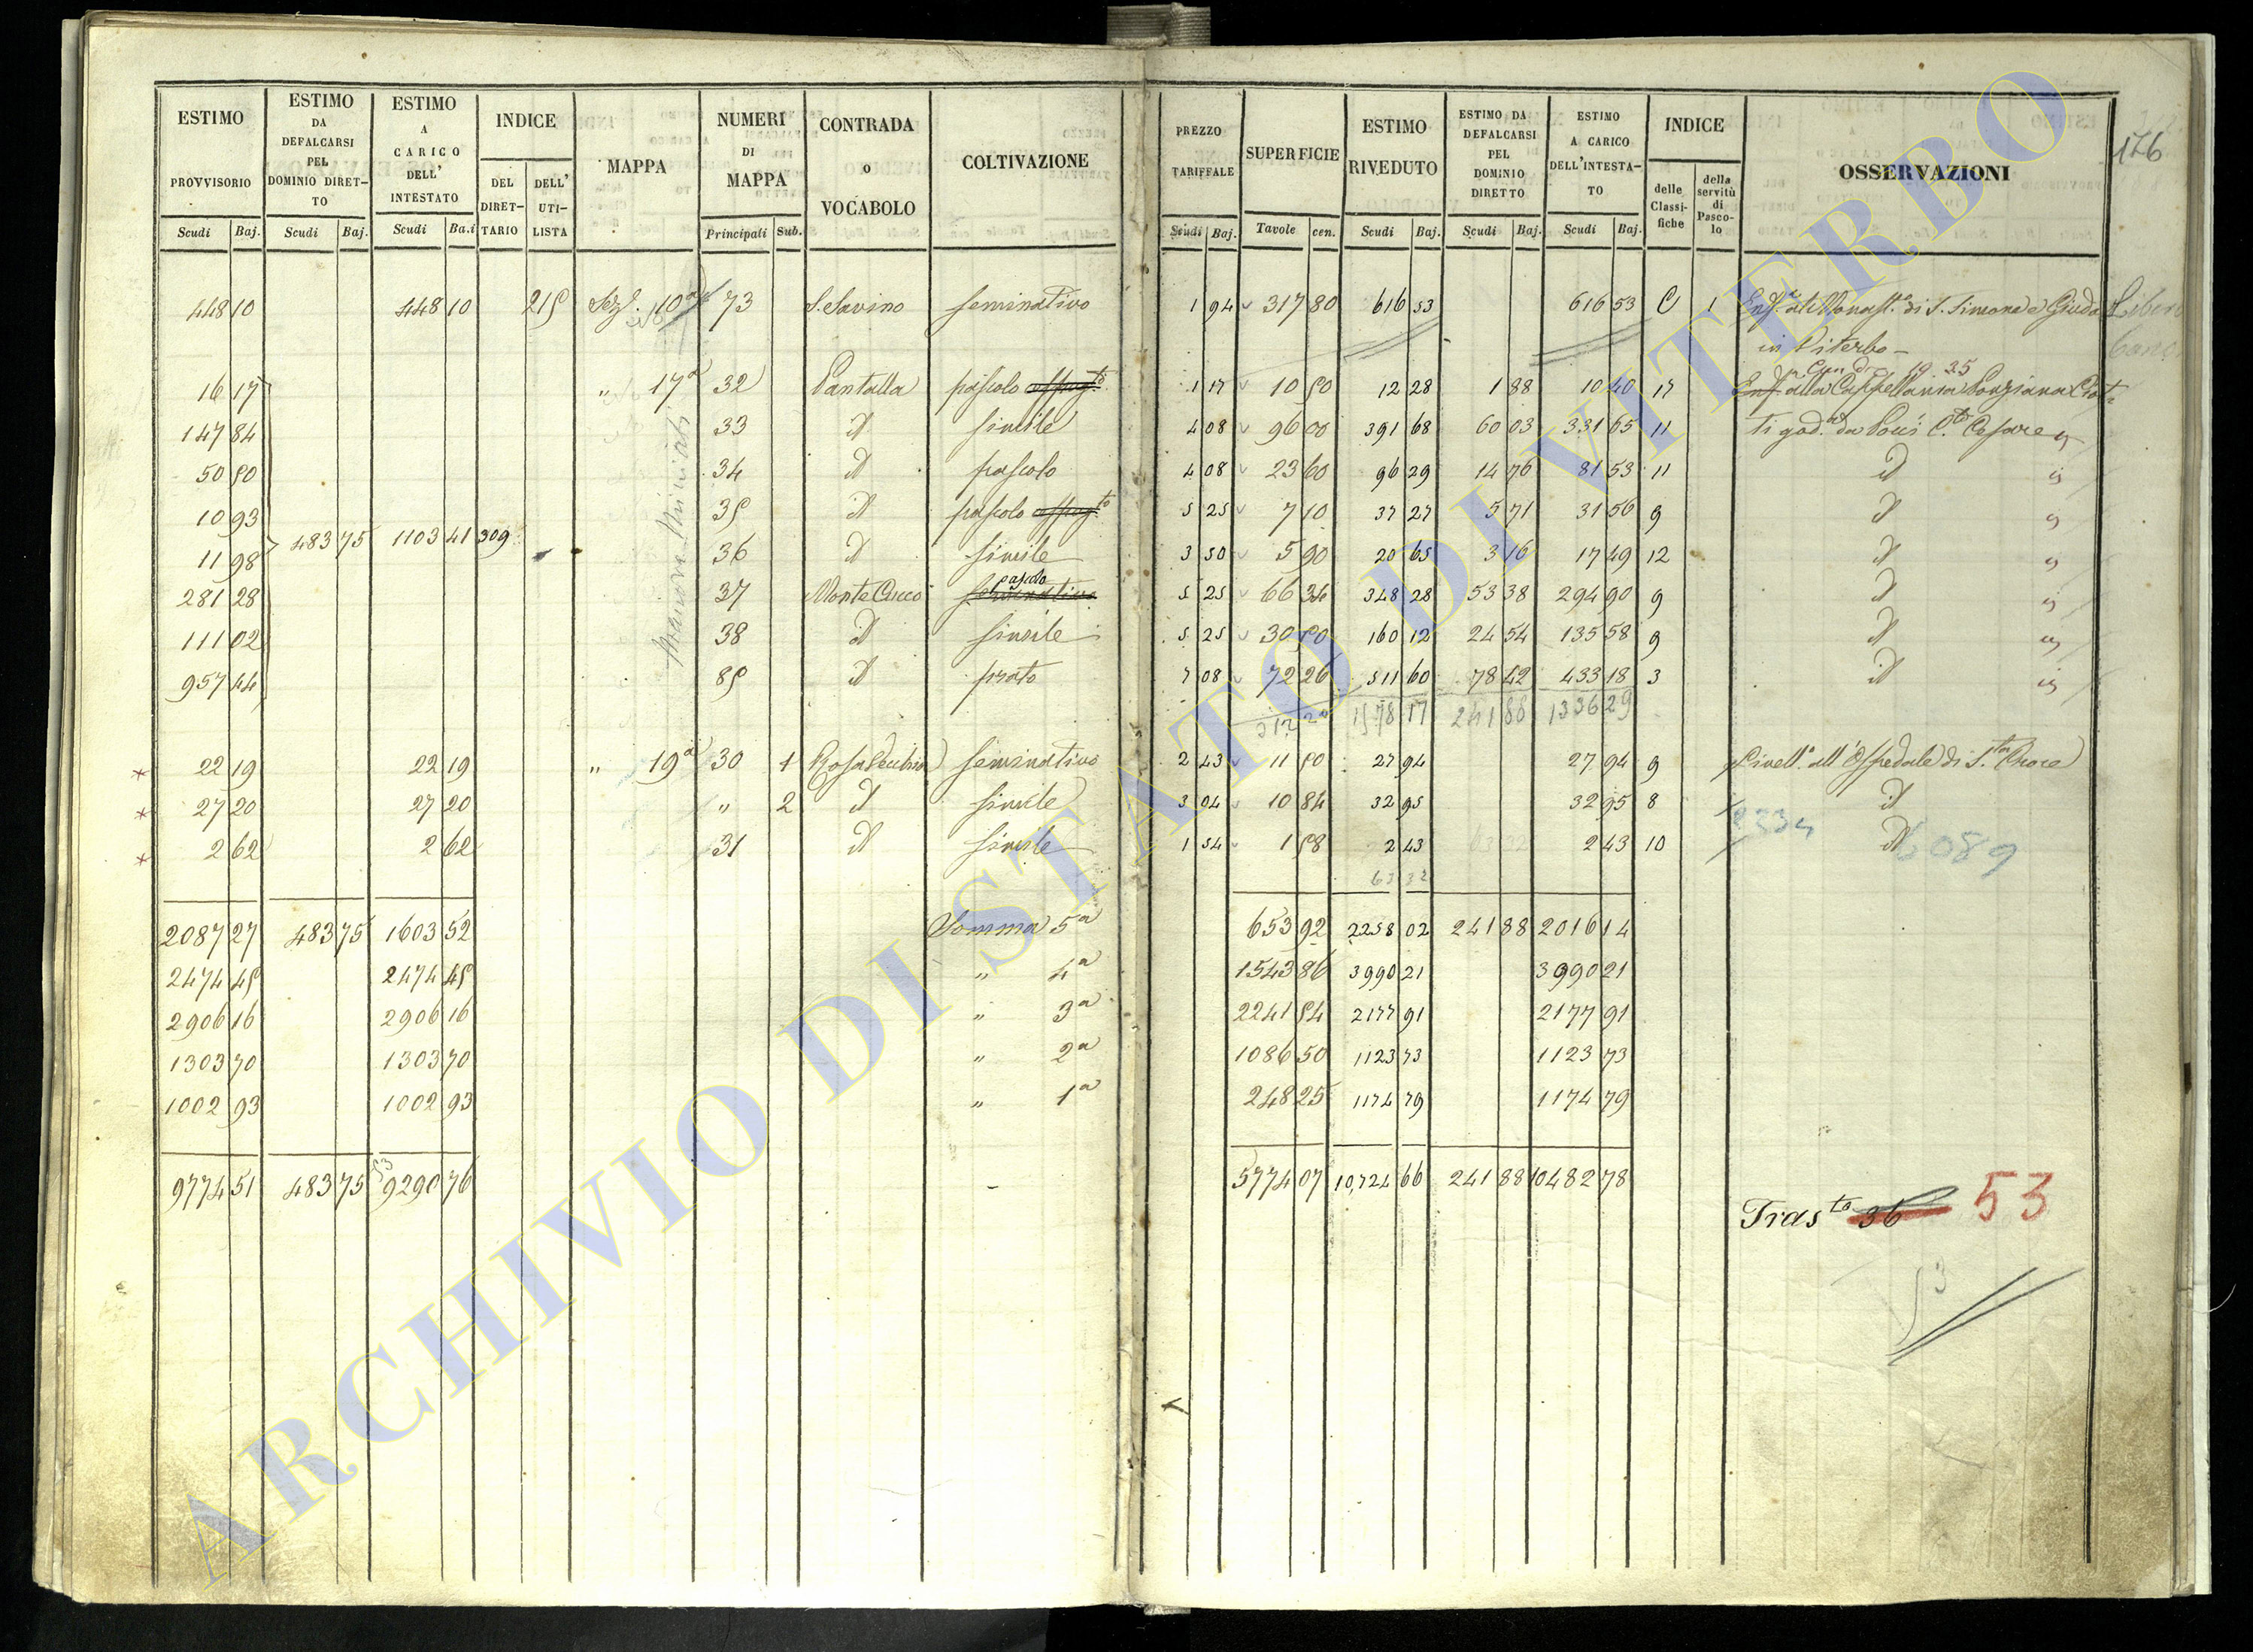 ESTIMO PROVVISORIO Scudi Baj.
ESTIMO DA DEFALCARSI PEL DOMINIO DIRETTO Scudi Baj.
ESTIMO A CARICO DELL' INTESTATO Scudi Ba.i
INDICE DEL DIRETTARIO DELL' UTILISTA
MAPPA
NUMERI DI MAPPA Principali Sub.
CONTRADA o VOCABOLO
COLTIVAZIONE
PREZZO TARIFFALE Scudi Baj.
SUPERFICIE Tavole cen.
ESTIMO RIVEDUTO Scudi Baj.
ESTIMO DA DEFALCARSI PEL DOMINIO DIRETTO Scudi Baj.
ESTIMO A CARICO DELL'INTESTATO Scudi Baj.
INDICE delle Classifiche della servitù di Pascolo
OSSERVAZIONI
176
448 10 448 10 215 Sez. 10a 73 S. Savino seminativo 1 94 317 80 616 53 616 53 1 di S. Simone e Giuda
in Viterbo
16 17 " 17a 32 Pantalla pascolo 1 17 10 50 12 28 1 88 10 40 17 alla Cappellania
147 84 33 id simile 4 08 96 00 391 68 60 03 331 65 11 Cesare
50 50 34 id pascolo 4 08 23 60 96 29 14 76 81 53 11 id
10 93 35 id pascolo 5 25 7 10 37 27 5 71 31 56 9 id
483 75 1103 41 309
11 98 36 id simile 3 50 5 90 20 65 3 16 17 49 12 id
281 28 37 Monte Cucco pascolo 5 25 66 34 348 28 53 38 294 90 9 id
111 02 38 id simile 5 25 30 50 160 12 24 54 135 58 9 id
957 44 85 id prato 7 08 72 26 511 60 78 42 433 18 3 id
312 20 1578 17 241 88 1336 29
22 19 22 19 " 19a 30 1 seminativo 2 43 11 50 27 94 27 94 9 Livell. all'Ospedale di S.
27 20 27 20 " 2 id simile 3 04 10 84 32 95 32 95 8 id
2 62 2 62 31 id simile 1 54 1 58 2 43 2 43 10 id 6089
63 32
2087 27 483 75 1603 52 Somma 5a 653 92 2258 02 241 88 2016 14
2474 45 2474 45 " 4a 1543 86 3990 21 3990 21
2906 16 2906 16 " 3a 2241 54 2177 91 2177 91
1303 70 1303 70 " 2a 1086 50 1123 73 1123 73
1002 93 1002 93 " 1a 248 25 1174 79 1174 79
9774 51 483 75 9290 76 5774 07 10,724 66 241 88 10482 78
Trasto 36 53
53
ARCHIVIO DI STATO DI VITERBO